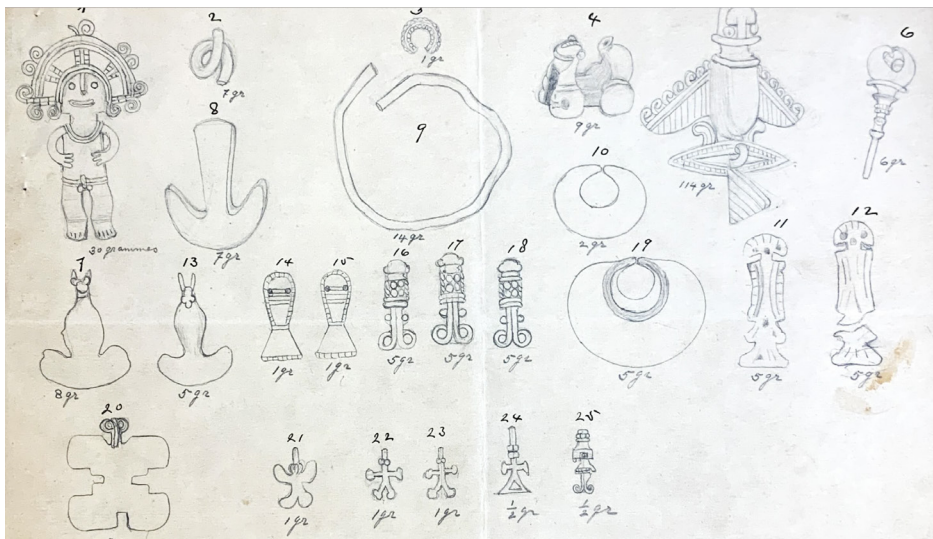 2
3
4
6
7gr
1gr
8
9
9gr
6gr
10
114gr
30 grammes
7gr
14gr
2gr
11
12
7
13
14
15
16
17
18
19
1gr
1gr
5gr
5gr
5gr
5gr
5gr
5gr
8gr
5gr
20
21
22
23
24
25
1gr
1gr
1gr
1/2 gr
1/2 gr